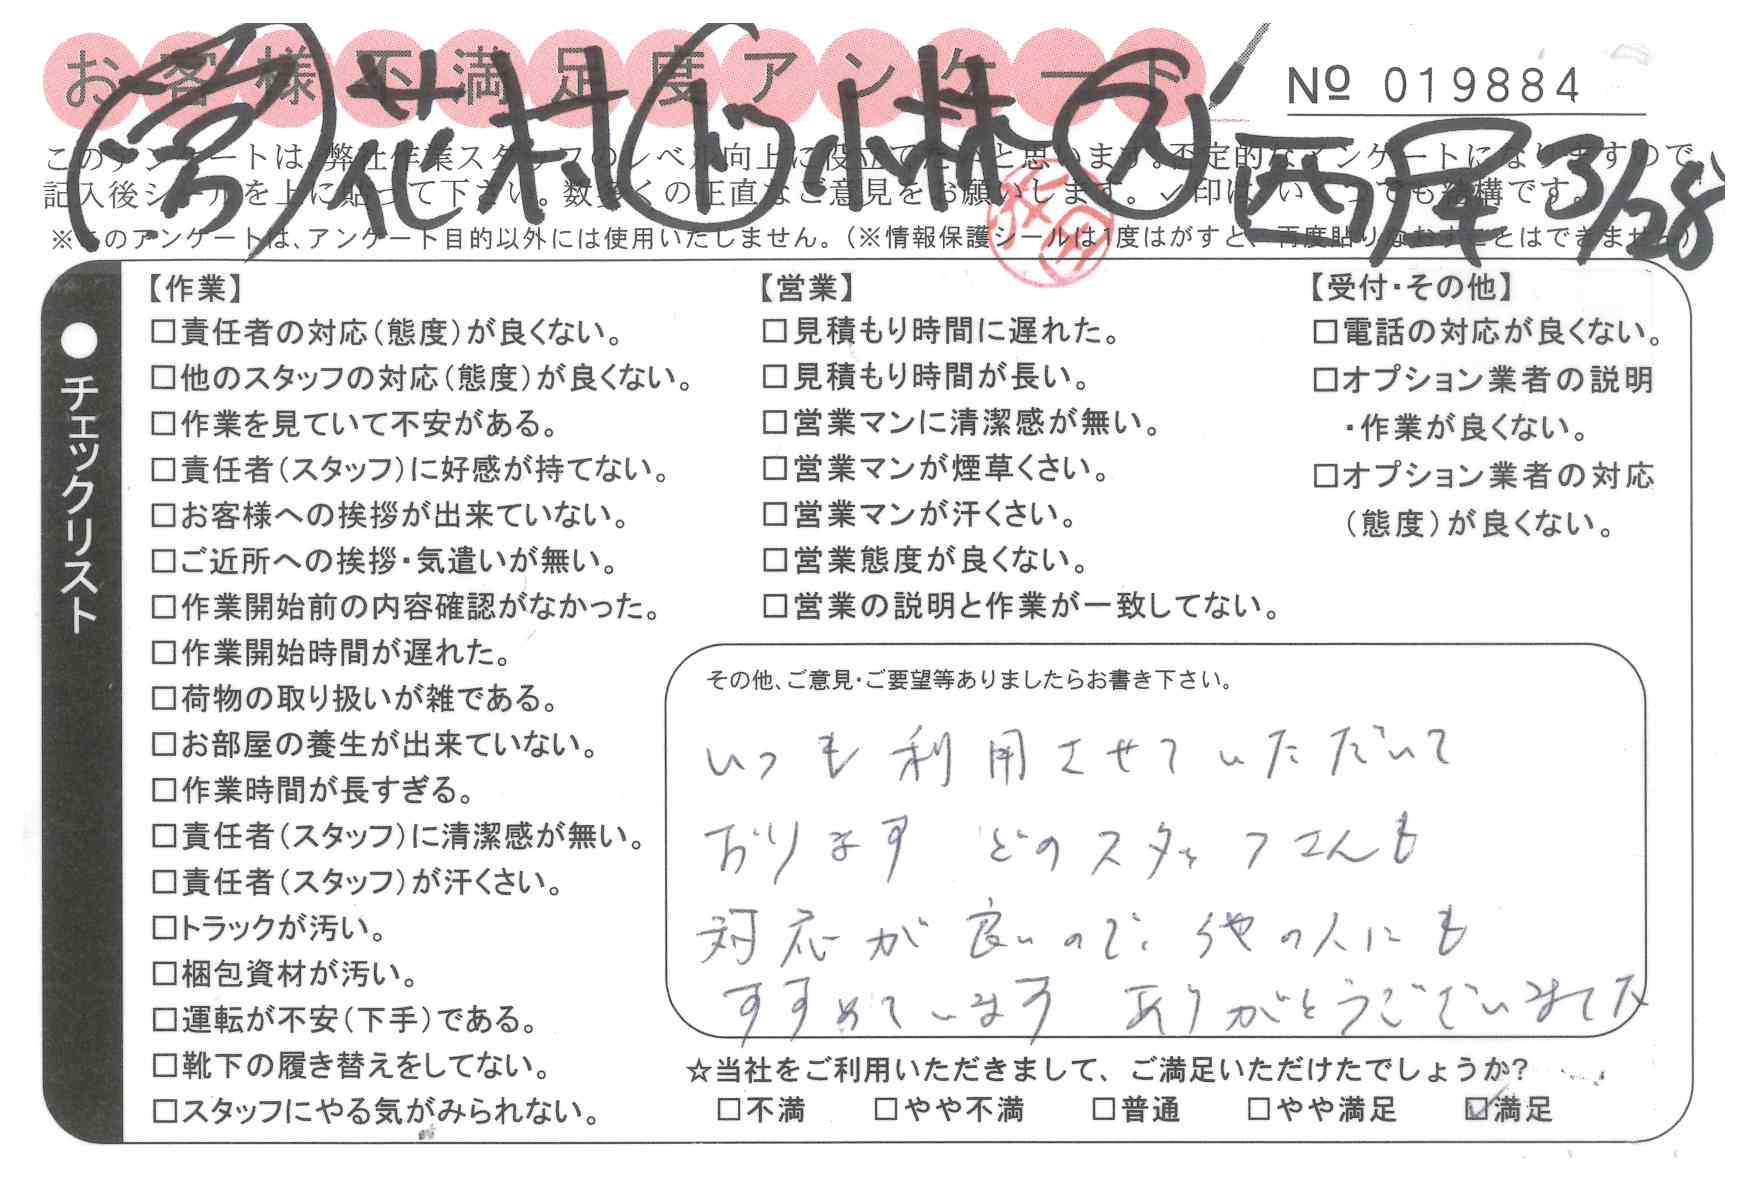 お客様不満足度アンケート
№ 019884
㊂花村 ド小林 西尾 3/28
このアンケートは、弊社作業スタッフのレベル向上に役立てたいと思います。不定的なアンケートになりますので、
記入後シールを上に貼って下さい。数多くの正直なご意見をお願いします。✓印は、いくつでも結構です。
※このアンケートは、アンケート目的以外には使用いたしません。(※情報保護シールは1度はがすと、再度貼りなおすことはできません)
●チェックリスト
【作業】
□責任者の対応(態度)が良くない。
□他のスタッフの対応(態度)が良くない。
□作業を見ていて不安がある。
□責任者(スタッフ)に好感が持てない。
□お客様への挨拶が出来ていない。
□ご近所への挨拶・気遣いが無い。
□作業開始前の内容確認がなかった。
□作業開始時間が遅れた。
□荷物の取り扱いが雑である。
□お部屋の養生が出来ていない。
□作業時間が長すぎる。
□責任者(スタッフ)に清潔感が無い。
□責任者(スタッフ)が汗くさい。
□トラックが汚い。
□梱包資材が汚い。
□運転が不安(下手)である。
□靴下の履き替えをしてない。
□スタッフにやる気がみられない。
【営業】
□見積もり時間に遅れた。
□見積もり時間が長い。
□営業マンに清潔感が無い。
□営業マンが煙草くさい。
□営業マンが汗くさい。
□営業態度が良くない。
□営業の説明と作業が一致してない。
【受付・その他】
□電話の対応が良くない。
□オプション業者の説明
・作業が良くない。
□オプション業者の対応
(態度)が良くない。
その他、ご意見・ご要望等ありましたらお書き下さい。
いつも利用させていただいて
おります どのスタッフさんも
対応が良いので、他の人にも
すすめています ありがとうございました
☆当社をご利用いただきまして、ご満足いただけたでしょうか?
□不満 □やや不満 □普通 □やや満足 ☑満足